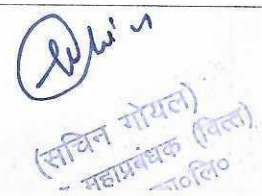 (सचिन गोयल)
महाप्रबंधक (वित्त)
का०लि०